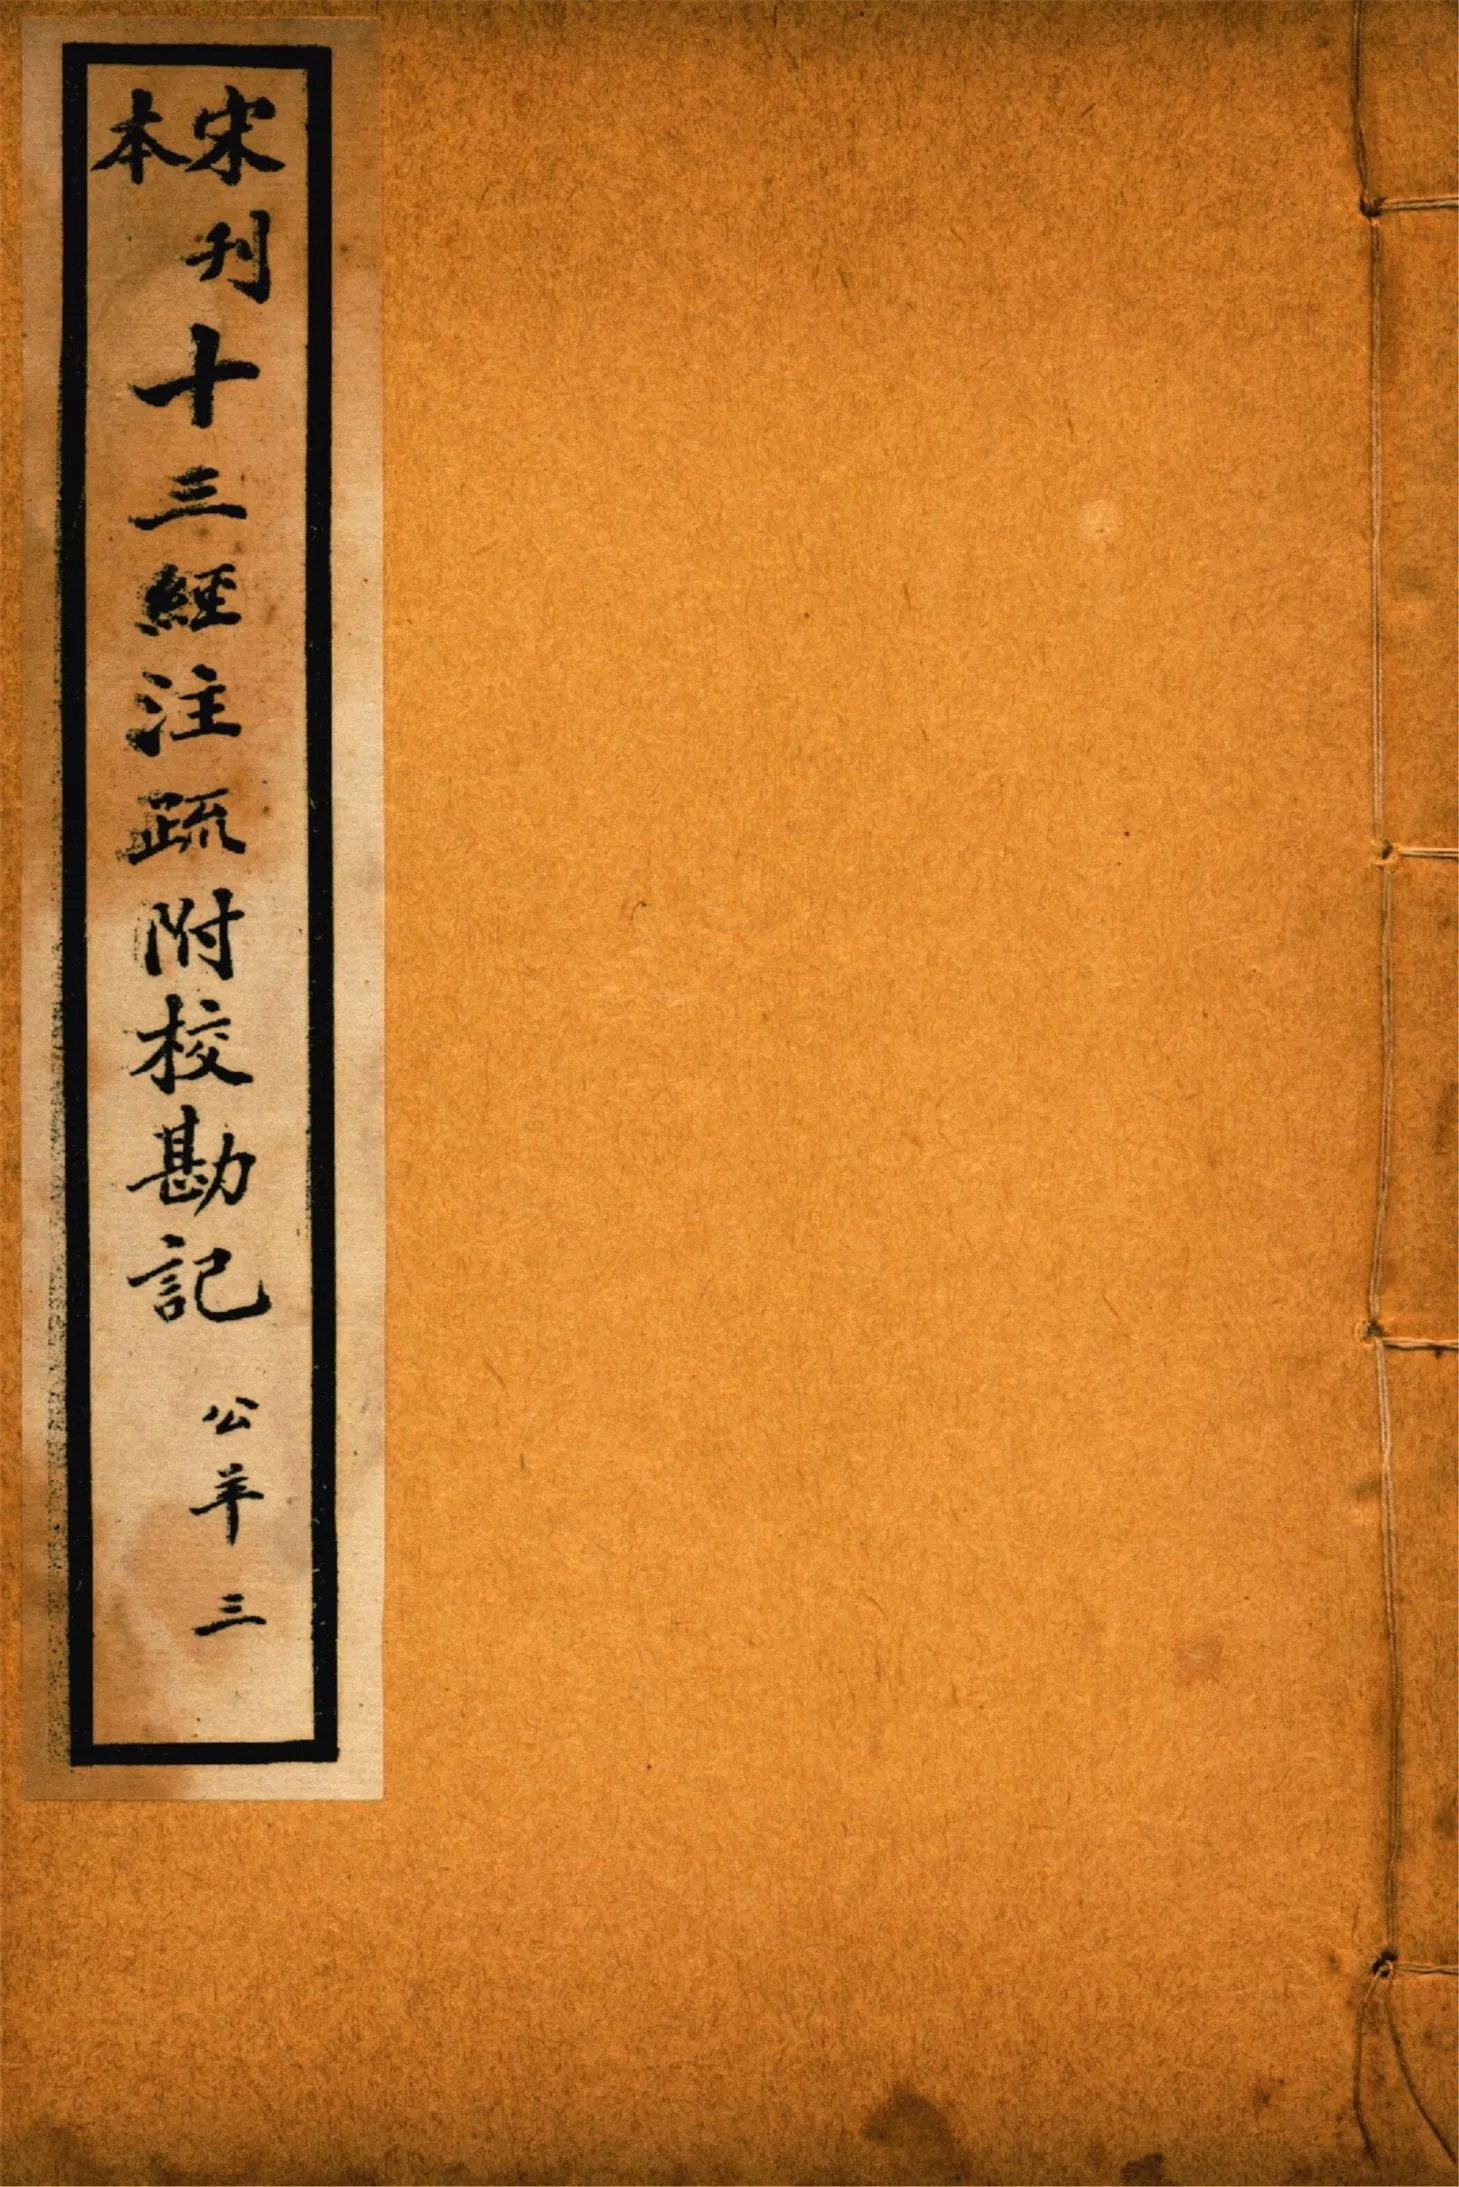 宋本刋十三經注疏附校勘記
公羊 三